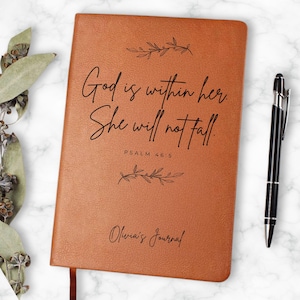 God is within her.
She will not fall.
PSALM 46:5
Olivia's Journal